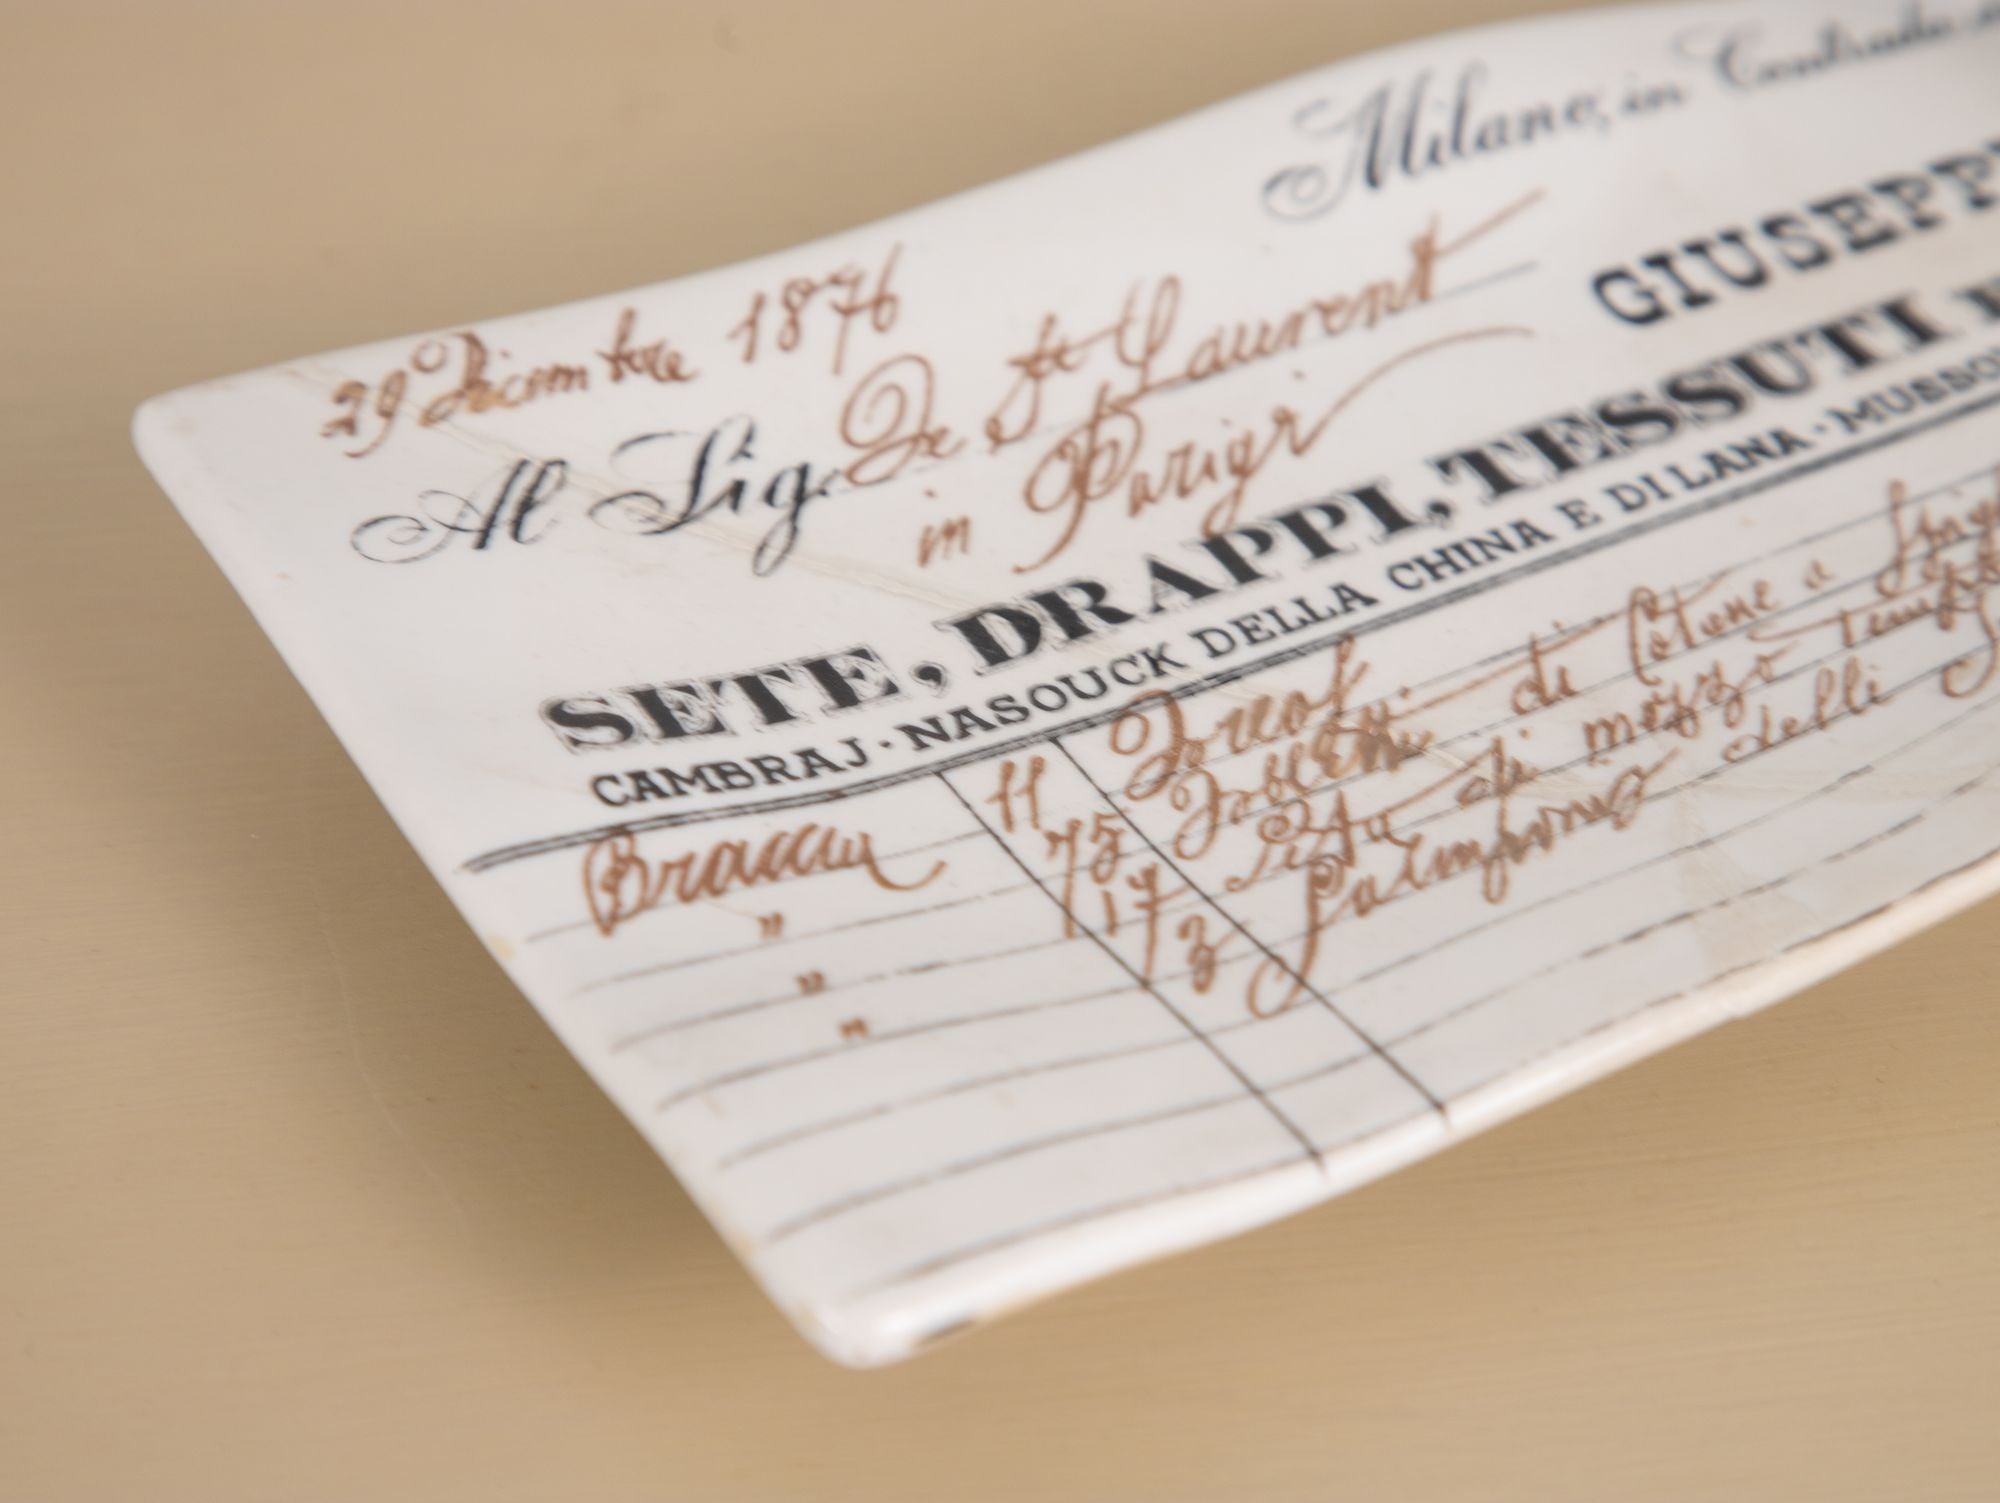 Milano, in Contrada
29 Dicembre 1876
GIUSEPP
Al Sig. De St Laurent
in Parigi
SETE, DRAPPI, TESSUTI
CAMBRAJ · NASOUCK DELLA CHINA E DI LANA · MUSSO
Braccia 11
" 75 di Cotone a
" 17 Seta di mezzo
" 3 delli